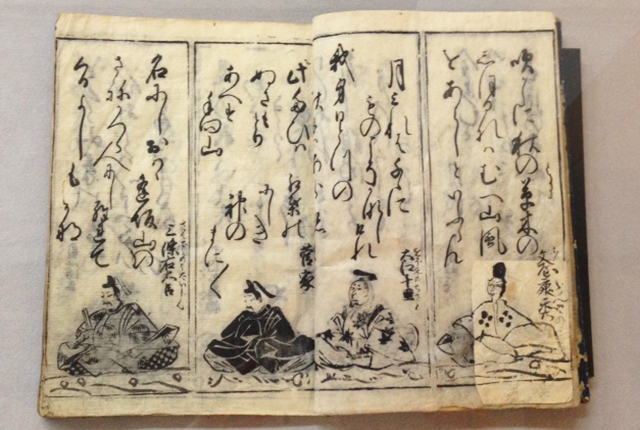 文屋康秀
吹からに秋の草木の
しほるれはむへ山風
をあらしといふらん
大江千里
月みれは千々に
ものこそかなしけれ
我身ひとつの
秋にはあらねと
菅家
此たひは
ぬさもとり
あへす
手向山
紅葉の
にしき
神の
まに〱
三條右大臣
名にしおはゝ逢坂山の
さねかつら人にしられて
くるよしもかな